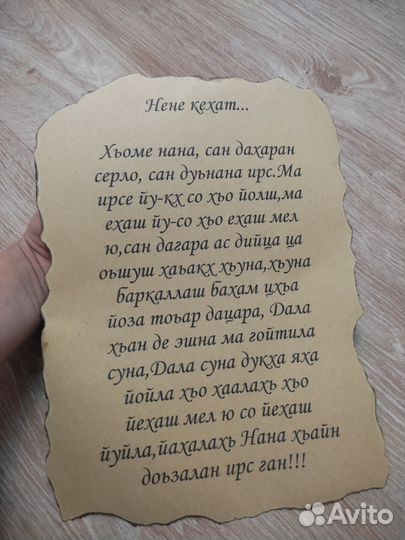 Нене кехат...
Хьоме нана, сан дахаран
серло, сан дуьнана ирс.Ма
ирсе йу-кх со хьо йолш,ма
ехаш йу-со хьо ехаш мел
ю,сан дагара ас дийца ца
оьшуш хаьакх хьуна,хьуна
баркаллаш бахам цхьа
йоза тоьар дацара, Дала
хьан де эшна ма гойтила
суна,Дала суна дукха яха
йойла хьо хаалахь хьо
йехаш мел ю со йехаш
йуйла,йахалахь Нана хьайн
доьзалан ирс ган!!!
Avito